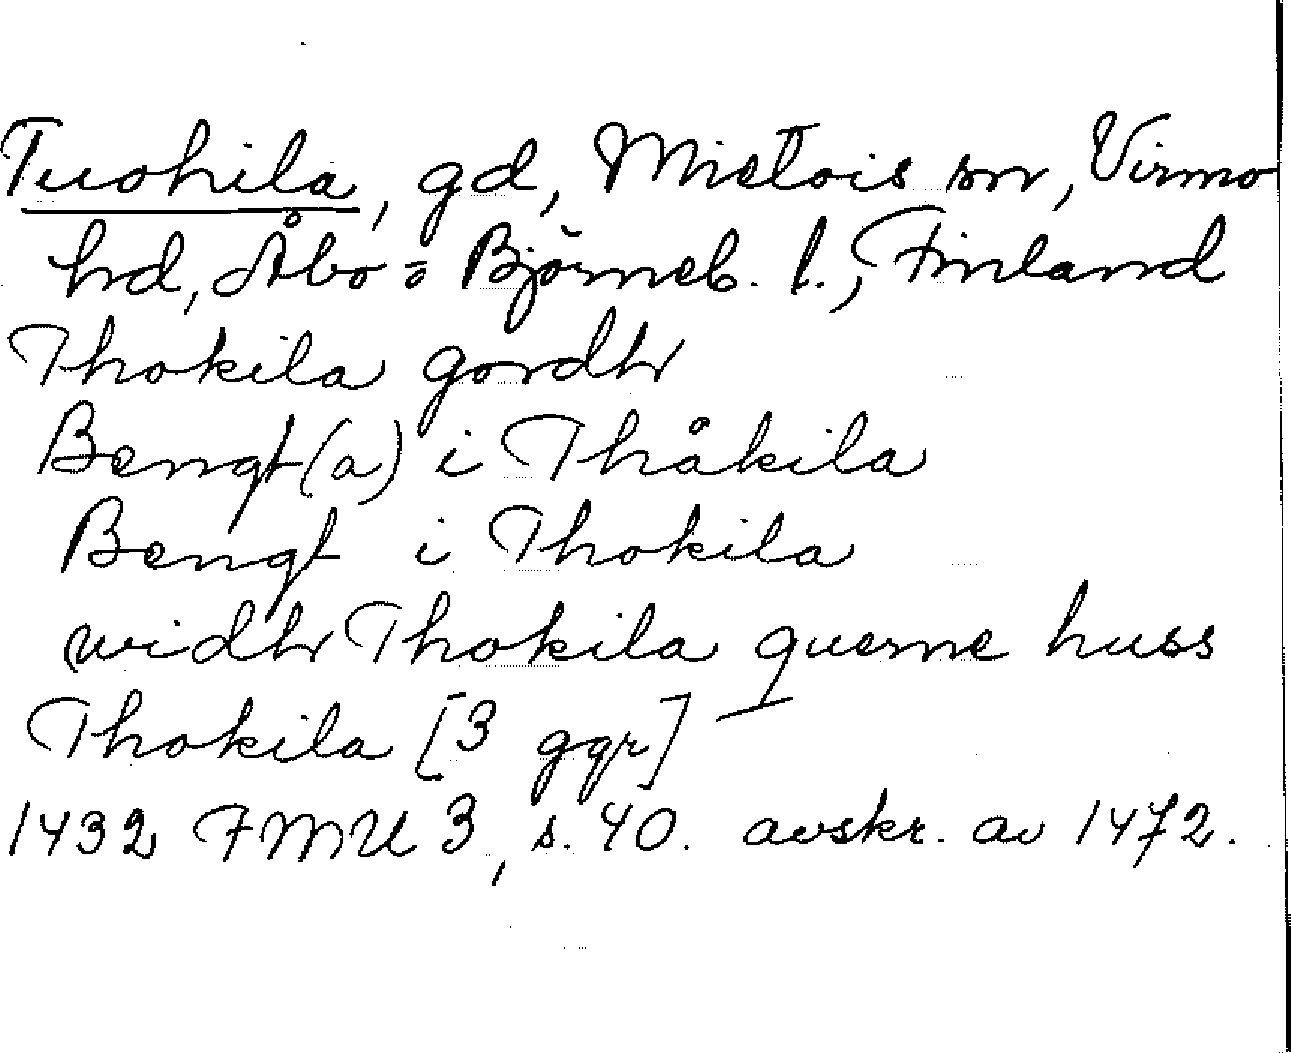 Tuohila, gd, Mietois sn, Virmo
hd, Åbo = Björneb. l., Finland
Thokila gordhr
Bengt(a) i Thåkila
Bengt i Thokila
widhr Thokila querne huss
Thokila [3 ggr]
1432 FMU 3, s. 40. avskr. av 1472.